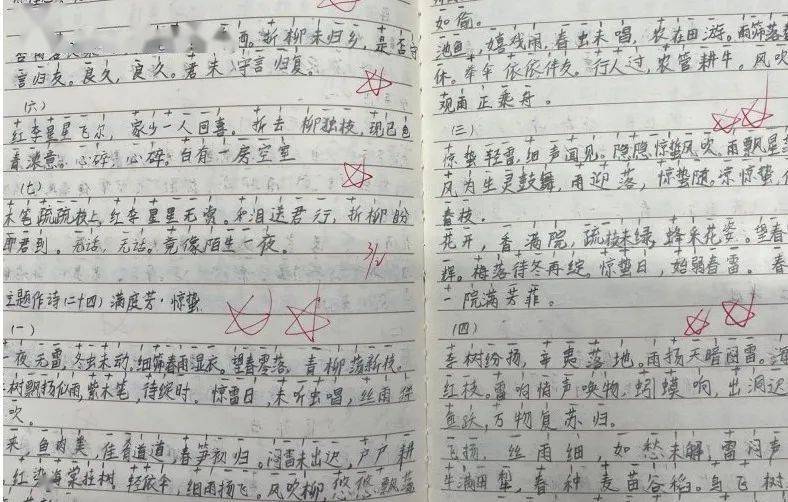 西。折柳未归乡，是否守
言归友。良久，良久。君未守言归复。
（六）
红李星星飞尔，家少一人回喜。折去柳独枝，现已色
春染意。心碎，心碎。白有一房空室
（七）
木笔疏疏枝上，红李星星无赏。和泪送君行，折柳盼
即君到。无话，无话。竟像陌生一夜。
主题作诗（二十四）满庭芳·惊蛰
（一）
一夜无雷，冬虫未动，细筛春雨湿衣。望春零落，青柳落新枝。
树飘扬似雨，紫木笔，待绽时。惊雷日，未听虫唱，丝雨
吹。
来，鱼肉美，佳肴道道，春笋初归。闷雷未出迟，户户耕
红染海棠挂树，轻依伞，细雨扬飞。风吹柳，悠悠飘落
如旧。
池鱼，嬉戏雨，春虫未唱，农在田游。雨筛落
休。伞伞依依伴友。行人过，农管耕牛。风吹
观雨正乘舟。
（三）
惊蛰轻雷，细声闻见。隐隐惊蛰风吹。雨飘星
风为生灵鼓舞，雨迎落，惊蛰随。惊惊蛰，
春枝。
花开，香满院，疏枝未绿，蜂采花姿。望春
辉。梅落待冬再绽。惊蛰日，始弱春雷。春
一院满芳菲。
（四）
李树纷扬，辛夷落地。雨扬天暗图雷。
红枝。雷响悄声唤物，蚂蟆响，出洞迟
鱼跃，万物复苏归。
飞扬，丝雨细，如愁未解，雷闷声
牛满田犁，春种麦苗谷稻。鸟飞树